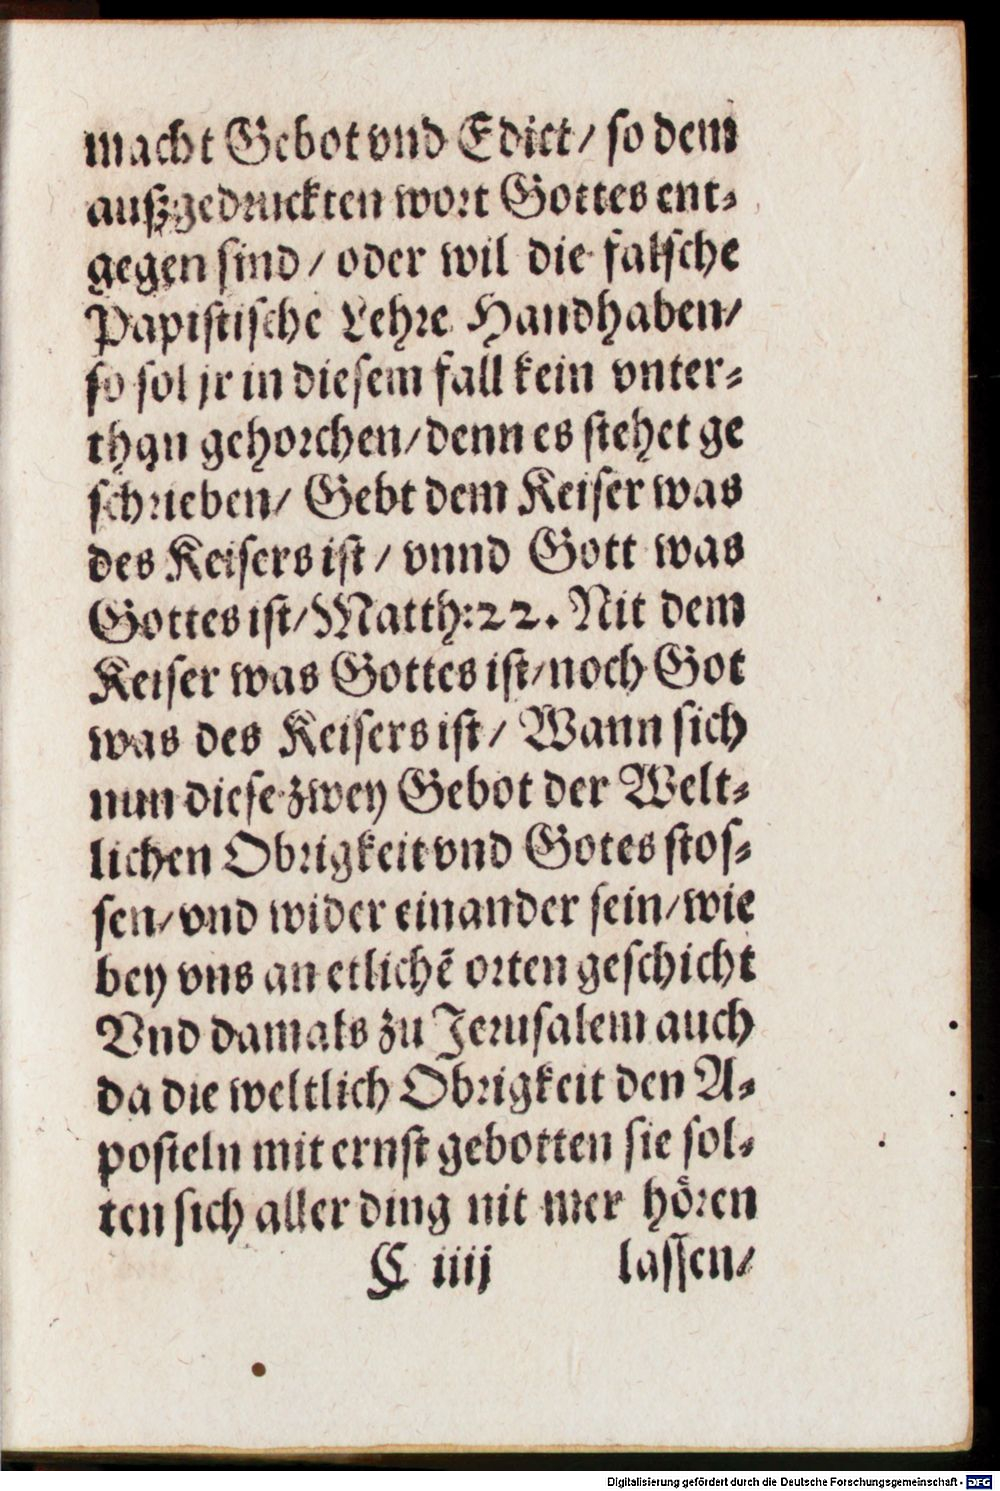 macht Gebot vnd Edict / so dem
außgedruckten wort Gottes ent⸗
gegen sind / oder wil die falsche
Papistische Lehre Handhaben /
so sol jr in diesem fall kein vnter⸗
than gehorchen / denn es stehet ge
schrieben / Gebt dem Keiser was
des Keisers ist / vnnd Gott was
Gottes ist / Matth: 22. Nit dem
Keiser was Gottes ist / noch Got
was des Keisers ist / Wann sich
nun diese zwey Gebot der Welt⸗
lichen Obrigkeit vnd Gotes stos⸗
sen / vnd wider einander sein / wie
bey vns an etlichē orten geschicht
Vnd damals zu Jerusalem auch
da die weltlich Obrigkeit den A⸗
posteln mit ernst gebotten sie sol⸗
ten sich aller ding nit mer hören
C iiij lassen /
Digitalisierung gefördert durch die Deutsche Forschungsgemeinschaft - DFG